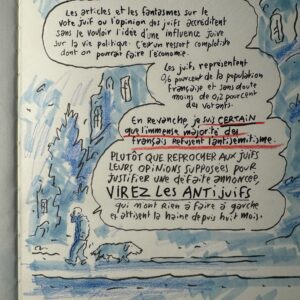 Les articles et les fantasmes sur le
vote juif ou l'opinion des juifs accréditent
sans le vouloir l'idée d'une influence juive
sur la vie politique. C'est un ressort complotiste
dont on pourrait faire l'économie.
Les juifs représentent
0,6 pourcent de la population
française et sans doute
moins de 0,2 pourcent
des votants.
En revanche, je suis CERTAIN
que l'immense majorité des
français refusent l'antisémitisme.
PLUTÔT QUE REPROCHER AUX JUIFS
LEURS OPINIONS SUPPOSÉES POUR
JUSTIFIER UNE DÉFAITE ANNONCÉE,
VIREZ LES ANTIJUIFS
qui n'ont rien à faire à gauche
et attisent la haine depuis huit mois.